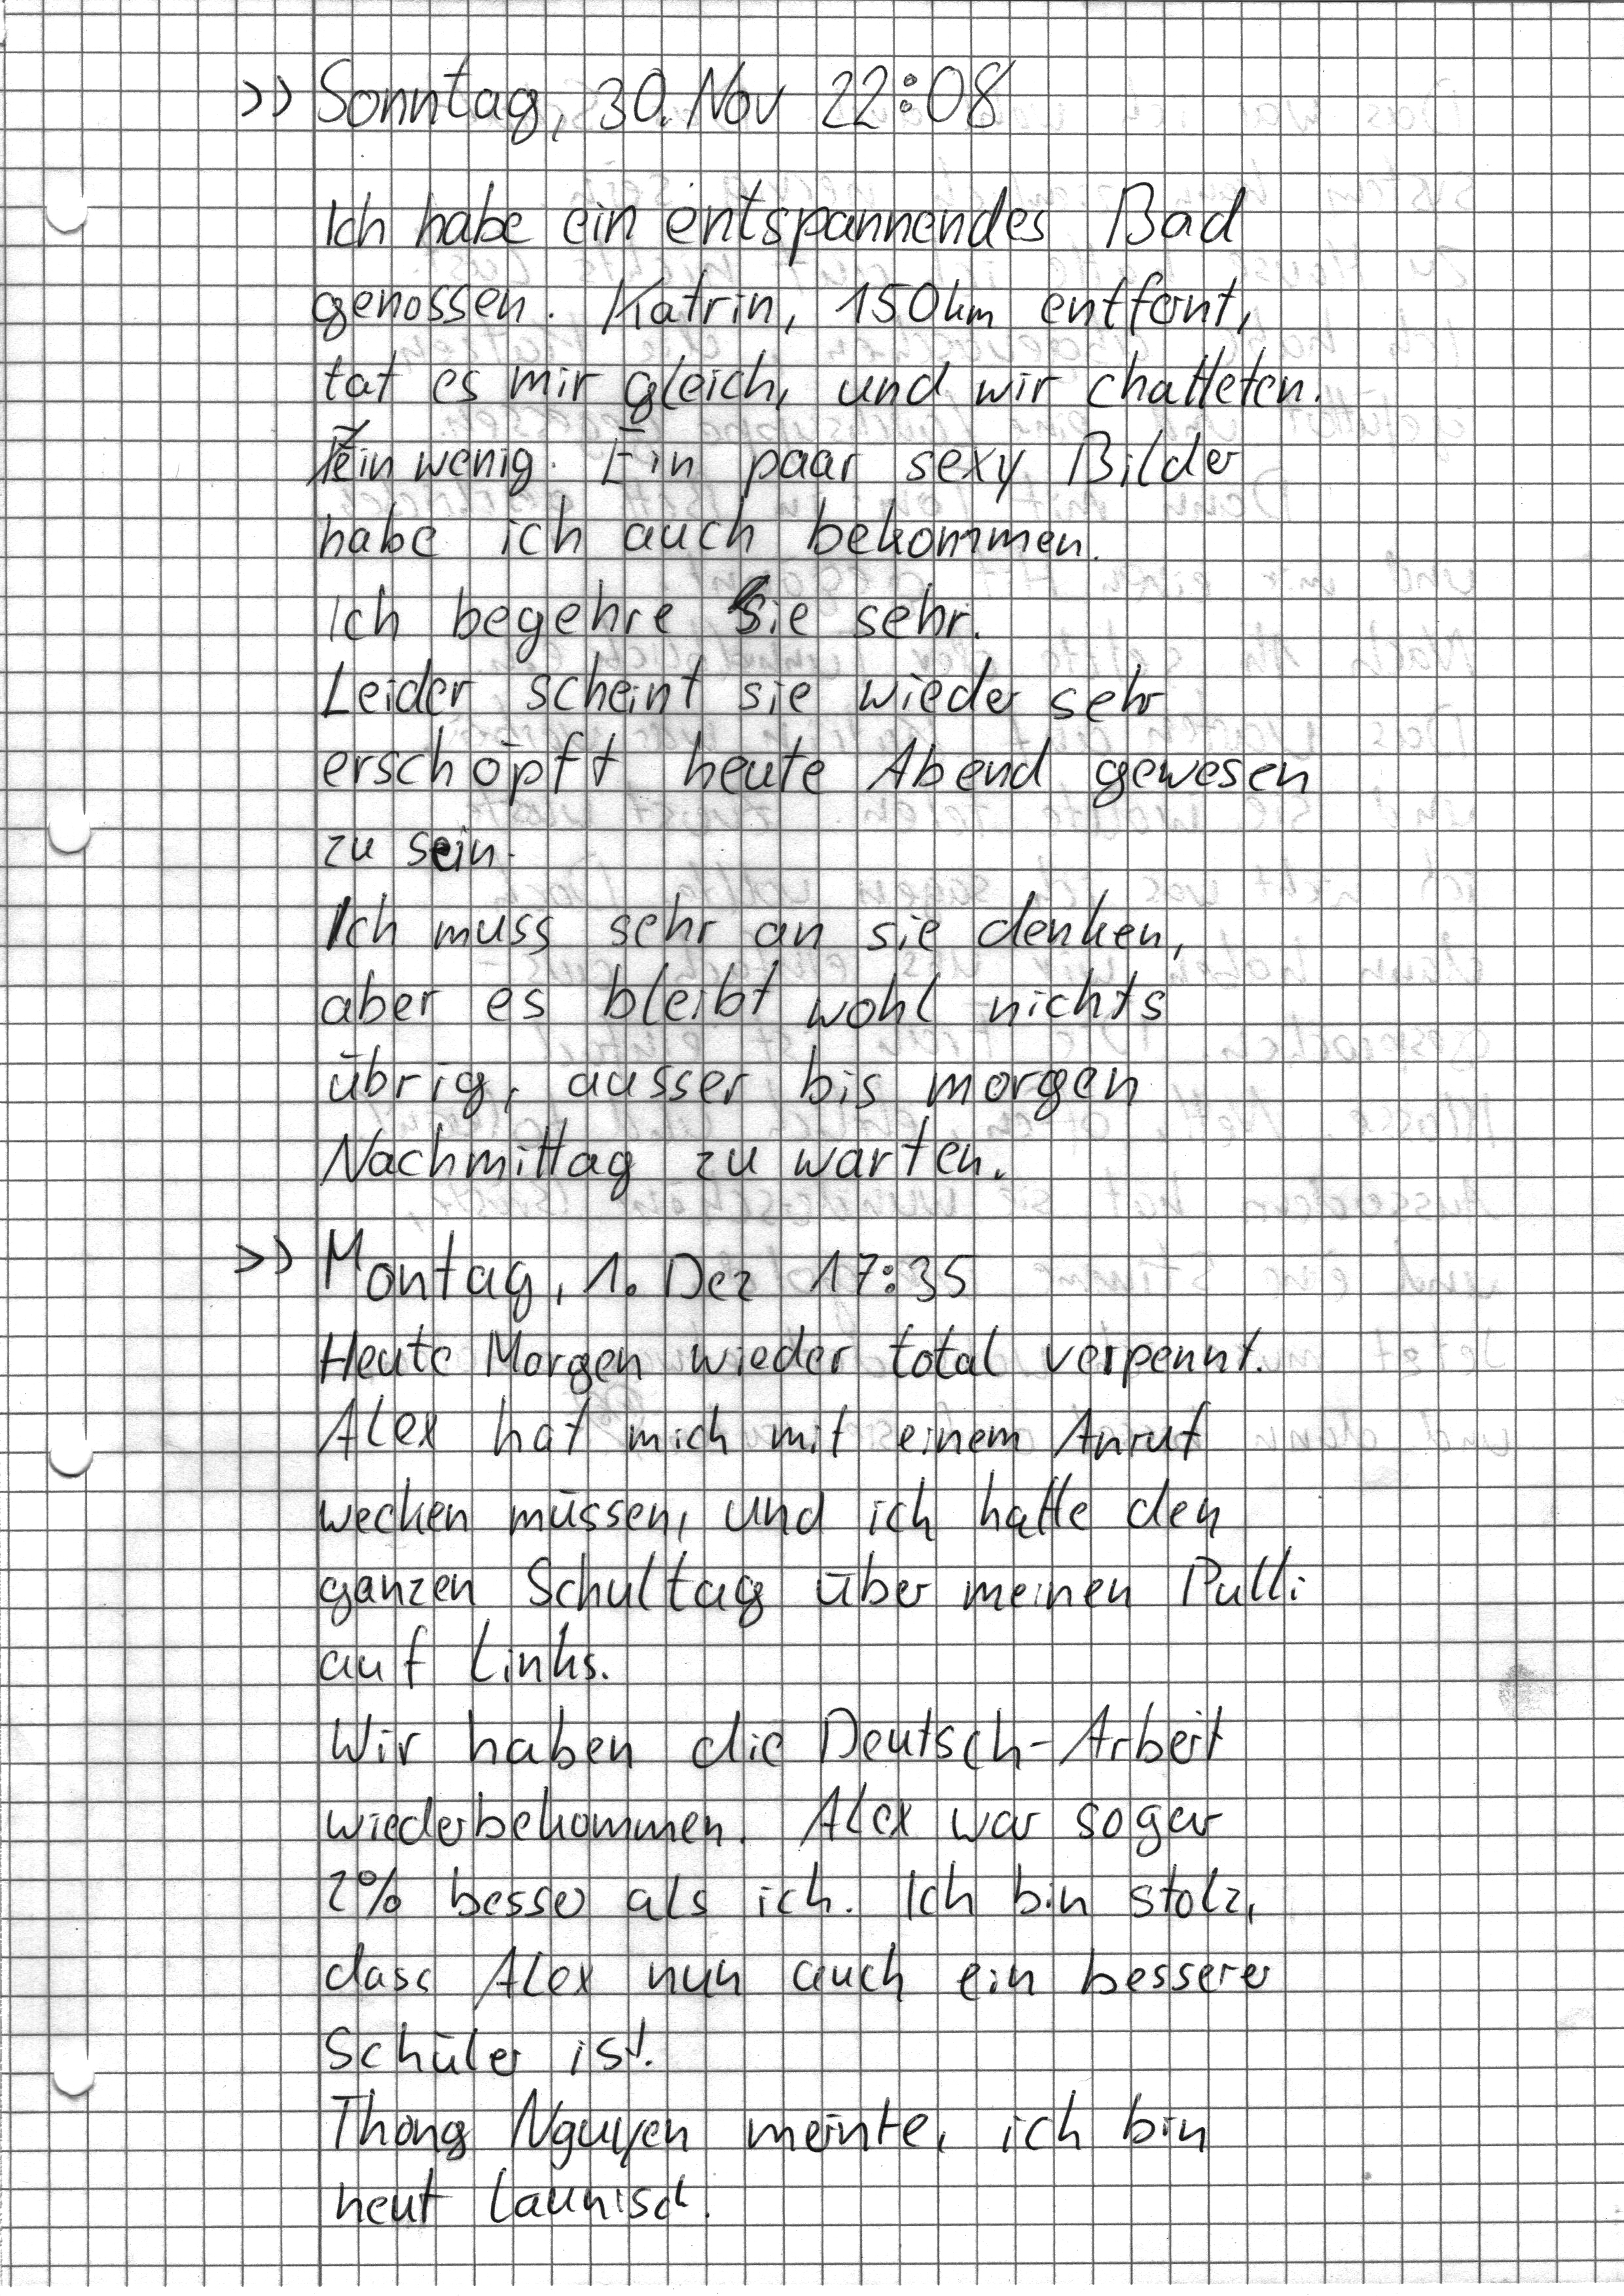 >> Sonntag, 30. Nov 22:08
Ich habe ein entspannendes Bad
genossen. Katrin, 150km entfernt,
tat es mir gleich, und wir chatteten.
Ein wenig. Ein paar sexy Bilder
habe ich auch bekommen.
Ich begehre sie sehr.
Leider scheint sie wieder sehr
erschöpft heute Abend gewesen
zu sein.
Ich muss sehr an sie denken,
aber es bleibt wohl nichts
übrig, ausser bis morgen
Nachmittag zu warten.
>> Montag, 1. Dez 17:35
Heute Morgen wieder total verpennt.
Alex hat mich mit einem Anruf
wecken müssen, und ich hatte den
ganzen Schultag über meinen Pulli
auf Links.
Wir haben die Deutsch-Arbeit
wiederbekommen. Alex war sogar
2% besser als ich. Ich bin stolz,
dass Alex nun auch ein besserer
Schüler ist!
Thong Nguyen meinte, ich bin
heut launisch.